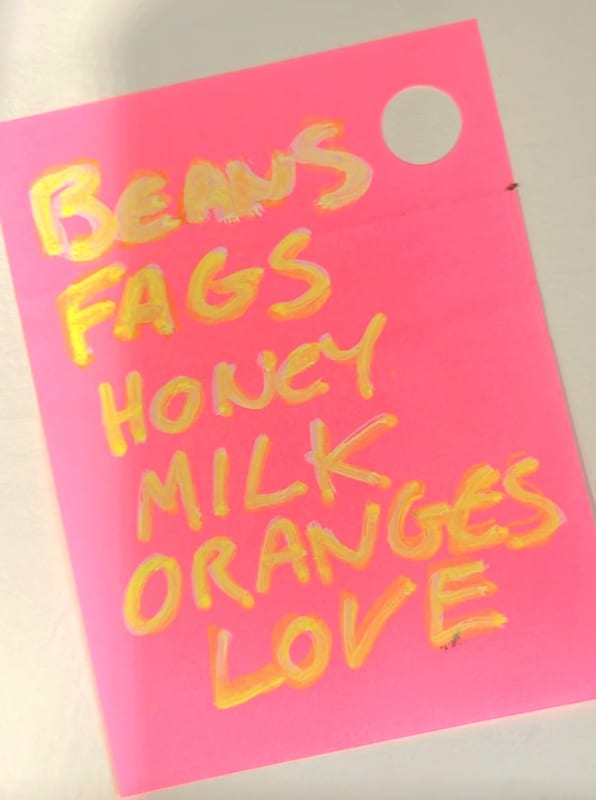 BEANS
FAGS
HONEY
MILK
ORANGES
LOVE